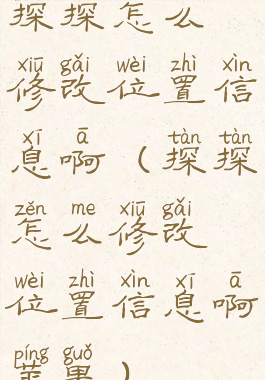 探探怎么
xiū gǎi wèi zhì xìn
修改位置信
xī ā tàn tàn
息啊（探探
zěn me xiū gǎi
怎么修改
wèi zhì xìn xī ā
位置信息啊
píng guǒ
苹果）